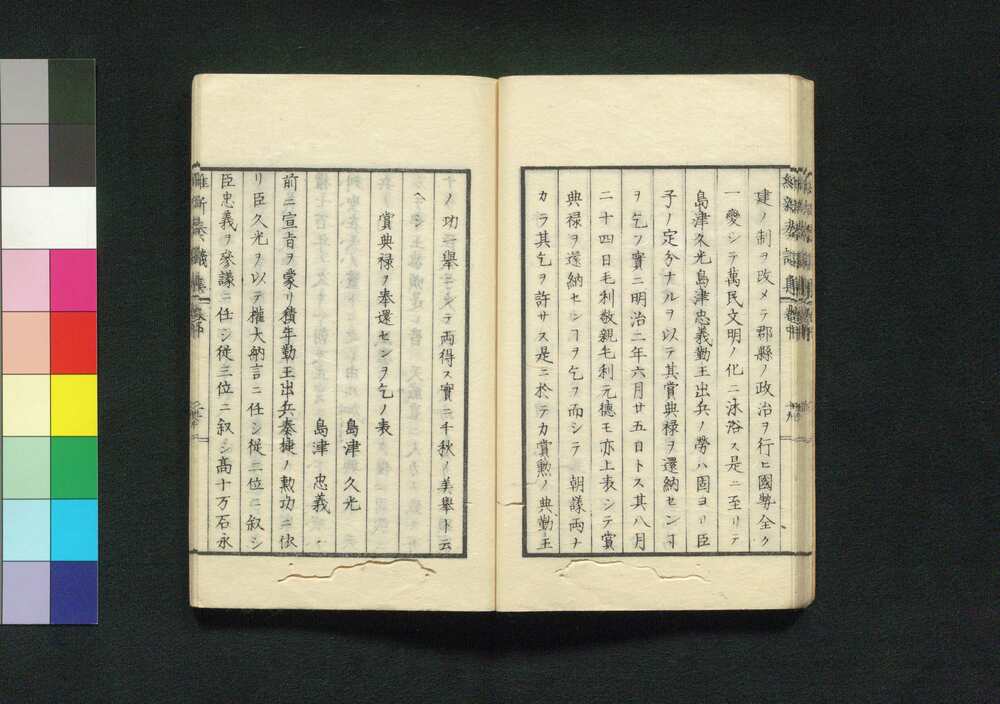 建ノ制ヲ改メテ郡縣ノ政治ヲ行ヒ國勢全ク
一變シテ萬民文明ノ化ニ沐浴ス是ニ至リテ
島津久光島津忠義勤王出兵ノ勞ハ固ヨリ臣
子ノ定分ナルヲ以テ其賞典禄ヲ還納センヿ
ヲ乞フ實ニ明治二年六月廿五日トス其八月
二十四日毛利敬親毛利元德モ亦上表シテ賞
典禄ヲ還納センヿヲ乞フ而シテ朝議両ナ
カラ其乞ヲ許サス是ニ於テカ賞勲ノ典勤王
ノ功一舉ニシテ両得ス實ニ千秋ノ美舉ト云
ヘシ
賞典禄ヲ奉還センヿヲ乞ノ表
島津久光
島津忠義
前ニ宣旨ヲ蒙リ積年勤王出兵奏捷ノ勲功ニ依
リ臣久光ヲ以テ權大納言ニ任シ従二位ニ叙シ
臣忠義ヲ參議ニ任シ従三位ニ叙シ高十万石永